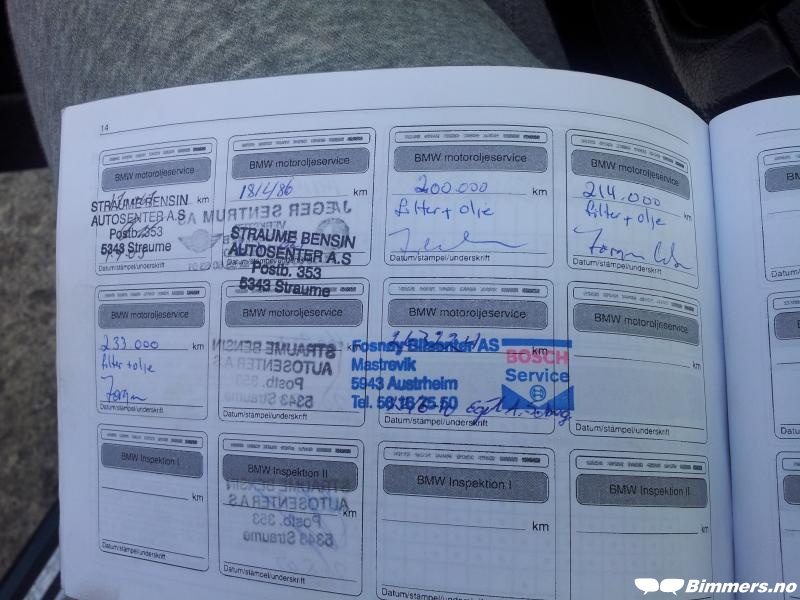 14
BMW motoroljeservice
STRAUME BENSIN
AUTOSENTER A.S
Postb. 353
5343 Straume
km
BMW motoroljeservice
km
JÆGER SENTRUM A
STRAUME BENSIN
AUTOSENTER A.S
Postb. 353
5343 Straume
Datum/stämpel/underskrift
BMW motoroljeservice
200.000
km
filter + olje
Datum/stämpel/underskrift
BMW motoroljeservice
214.000
km
filter + olje
Datum/stämpel/underskrift
BMW motoroljeservice
233.000
km
filter + olje
Datum/stämpel/underskrift
BMW motoroljeservice
STRAUME BENSIN
AUTOSENTER A.S
Postb. 353
5343 Straume
Datum/stämpel/underskrift
BMW motoroljeservice
km
AS
Mastrevik
5943 Austrheim
BOSCH
Service
Datum/stämpel/underskrift
BMW motoroljeservice
km
Datum/stämpel/underskrift
BMW Inspektion I
km
Datum/stämpel/underskrift
BMW Inspektion II
km
STRAUME BENSIN
AUTOSENTER A.S
Postb. 353
5343 Straume
Datum/stämpel/underskrift
BMW Inspektion I
km
Datum/stämpel/underskrift
BMW Inspektion II
km
Datum/stämpel/underskrift
Bimmers.no